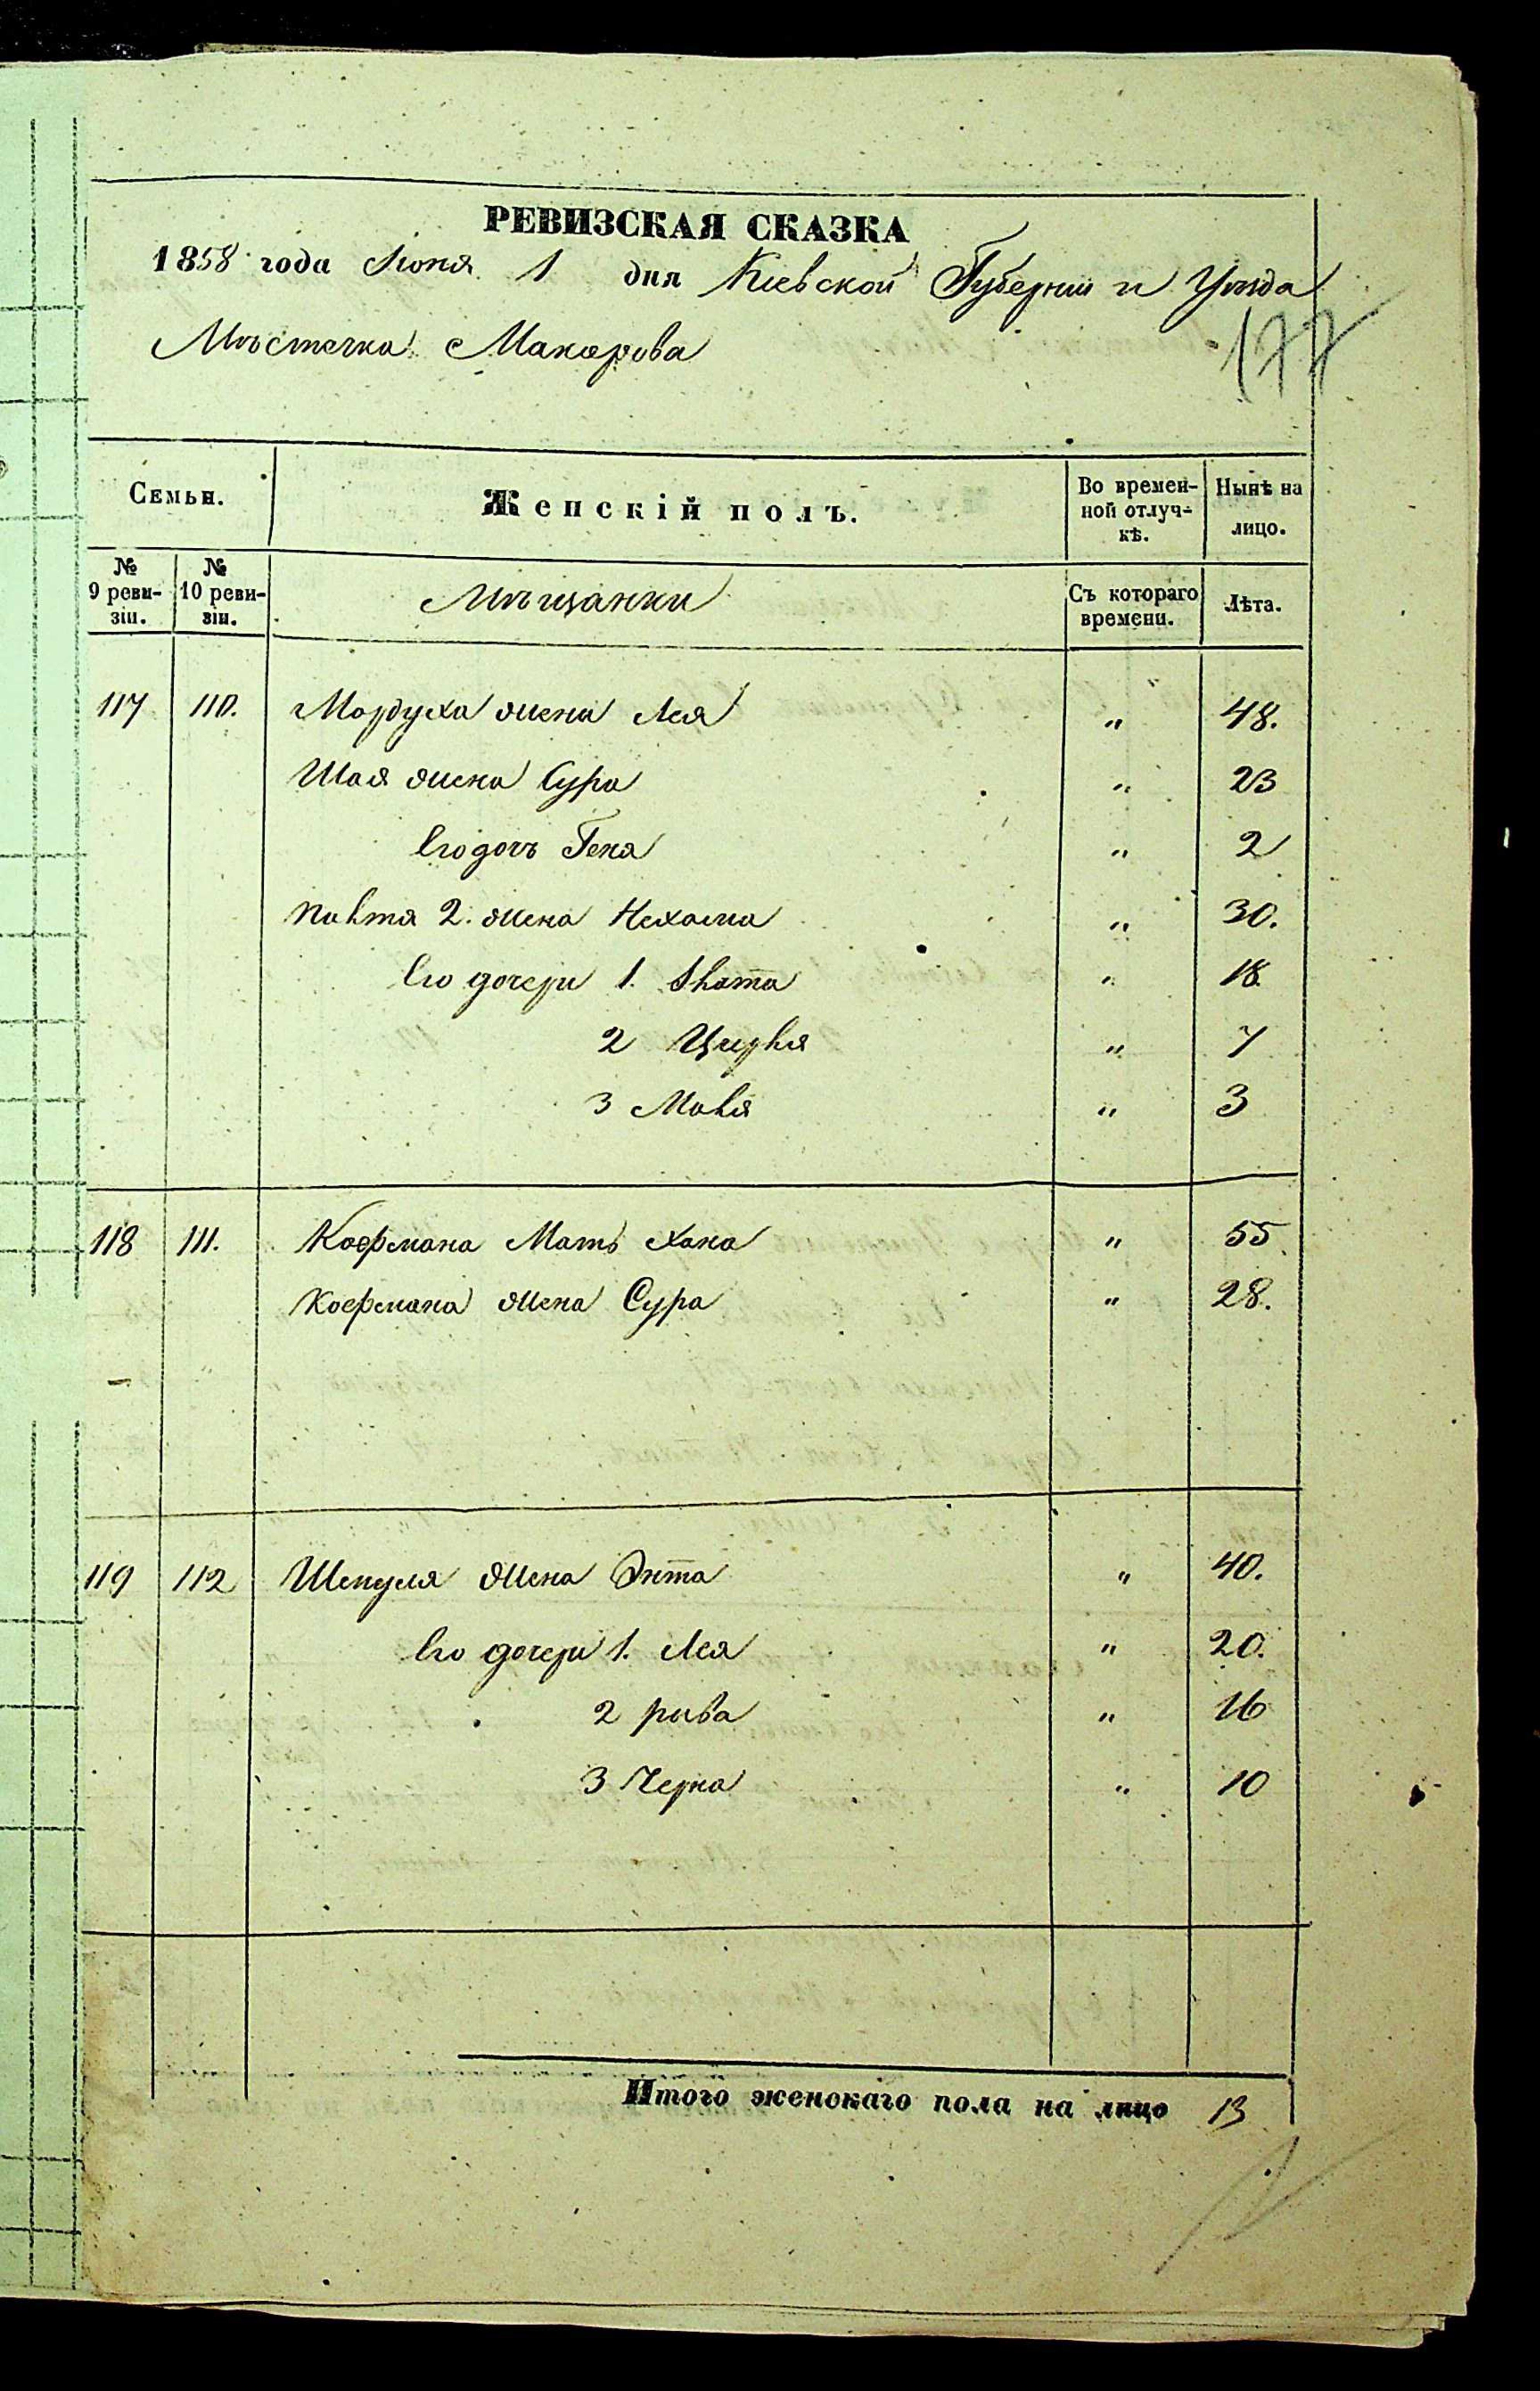 РЕВИЗСКАЯ СКАЗКА
1858 года Июня 1 дня Кіевской Губерніи и Уѣзда
Мѣстечка Макарова
177
Семьи. Женскій полъ. Во времен-ной отлуч-кѣ. Нынѣ на лицо.
№ 9 реви-зіи. № 10 реви-зіи. Мѣщанки Съ котораго времени. Лѣта.
117 110. Мордуха жена Лея " 48.
Шая жена Сура " 23
Его дочь Геня " 2
2. жена Нехама " 30.
Его дочери 1. " 18.
2 " 7
3 " 3
118 111. Кофмана Мать Хана " 55
Кофмана жена Сура " 28.
119 112 Шепселя жена Энта " 40.
Его дочери 1. Лея " 20.
2 рива " 16
3 Черна " 10
Итого женскаго пола на лицо 13